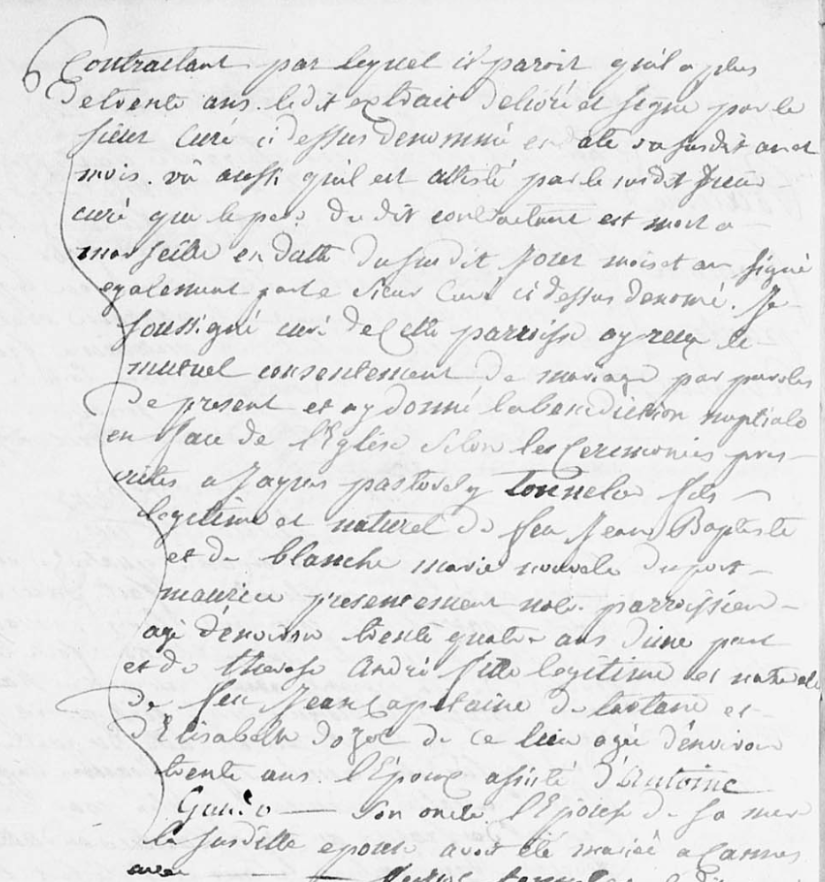 Contractant par lequel il paroit qu'il a plus
de trente ans. ledit extrait delivré et signé par le
sieur curé ci dessus denommé en date du susdit an et
mois. vû aussi qu'il est attesté par le susdit sieur
curé que le pere du dit contractant est mort a
marseille en datte du susdit jour mois et an signé
egalement par le sieur curé ci dessus denomé. Je
soussigné curé de cette parroisse ay reçu le
mutuel consentement de mariage par paroles
de present et ay donné la benediction nuptiale
en face de l'Eglise selon les ceremonies pres-
crites a Jaques pastorely tonnelier fils
legitime et naturel de feu Jean Baptiste
et de blanche marie du port
maurice presentement notre parroissien
agé d'environ trente quatre ans d'une part
et de therese André fille legitime et naturelle
de feu Jean capitaine de tartane et
d'Elisabeth de ce lieu agée d'environ
trente ans. l'Epoux assisté d'Antoine
son oncle, l'Epouse de sa mere
la susditte epouse avoit été mariée a Cannes
avec